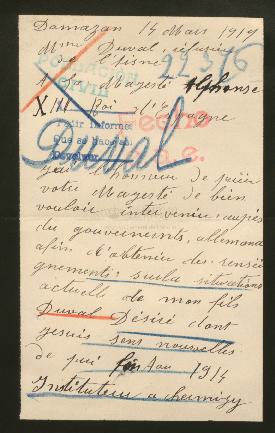 Damazan 14 Mars 1919
Mme Duval, réfugiée
de l'Aisne 22376
A Sa Majesté Alphonse
XIII Roi d'Espagne
Pedir informes
Que se hace al
Devolver
Hecho
Duval
j'ai l'honneur de prier
votre Majesté de bien
vouloir intervenir auprès
du gouvernements, allemand
afin d'obtenir des rensei
gnements, sur la situations
actuelle de mon fils
Duval Désiré dont
je suis sans nouvelles
de puis fin Aou 1914
Instituteur a